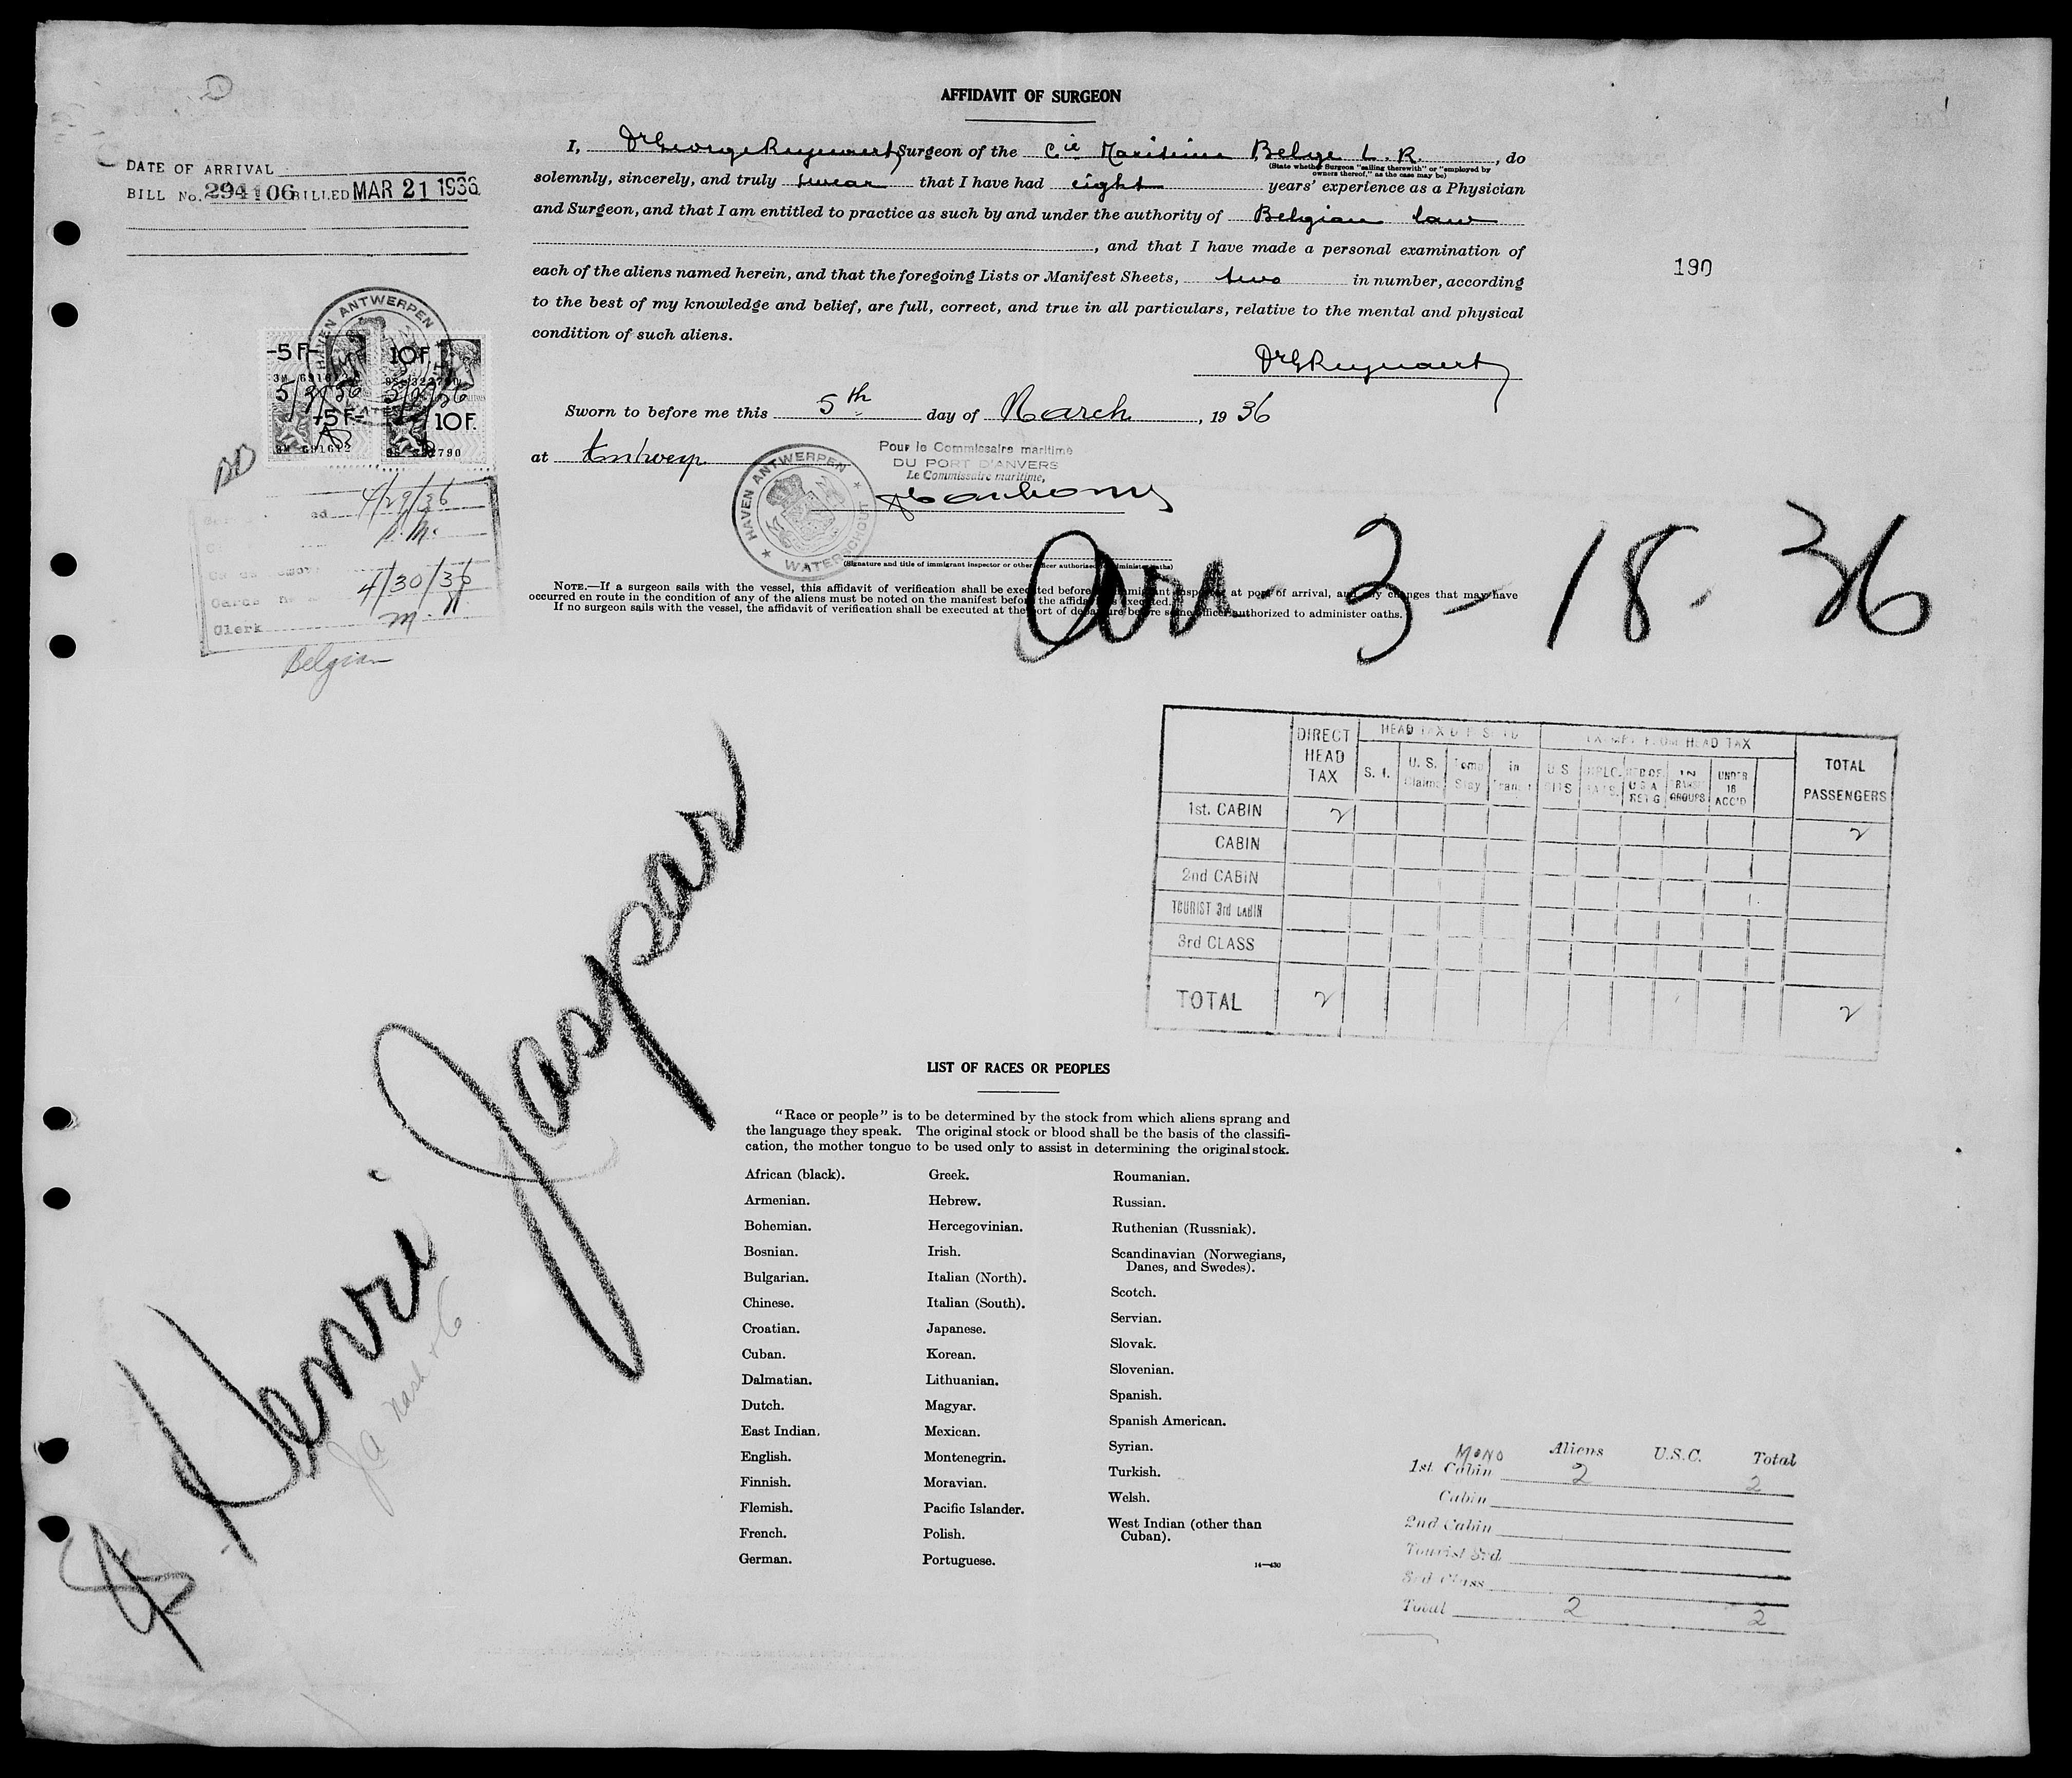 AFFIDAVIT OF SURGEON
I, Dr George Reynaert, Surgeon of the Cie Maritime Belge L. R., do
(State whether Surgeon "sailing therewith" or "employed by
owners thereof," as the case may be)
solemnly, sincerely, and truly swear that I have had eight years' experience as a Physician
and Surgeon, and that I am entitled to practice as such by and under the authority of Belgian law
, and that I have made a personal examination of
each of the aliens named herein, and that the foregoing Lists or Manifest Sheets, two in number, according
to the best of my knowledge and belief, are full, correct, and true in all particulars, relative to the mental and physical
condition of such aliens.
Dr G Reynaert
Sworn to before me this 5th day of March, 1936
at Antwerp
Pour le Commissaire maritime
DU PORT D'ANVERS
Le Commissaire maritime,
HAVEN ANTWERPEN
WATERSCHOUT
(Signature and title of immigrant inspector or other officer authorized to administer oaths)
NOTE.—If a surgeon sails with the vessel, this affidavit of verification shall be executed before an immigrant inspector at port of arrival, and any changes that may have
occurred en route in the condition of any of the aliens must be noted on the manifest before the affidavit is executed.
If no surgeon sails with the vessel, the affidavit of verification shall be executed at the port of departure before some officer authorized to administer oaths.
DATE OF ARRIVAL
BILL No. 294106 BILLED MAR 21 1936
190
HAVEN ANTWERPEN
-5F-
10F.
5/3/36
-5F-
10F.
3M 691612
4/29/36
4/30/36
Clerk
Belgian
Arr - 3 - 18 - 36
DIRECT HEAD TAX
S. I.
U. S. Claims
Temp Stay
In Transit
EXEMPT FROM HEAD TAX
U S CITS
DIPLO-MATS
IN TRANSIT GROUPS
UNDER 16 ACC'D
TOTAL PASSENGERS
1st. CABIN 2 2
CABIN
2nd CABIN
TOURIST 3rd CABIN
3rd CLASS
TOTAL 2 2
SS Henri Jaspar
LIST OF RACES OR PEOPLES
"Race or people" is to be determined by the stock from which aliens sprang and
the language they speak. The original stock or blood shall be the basis of the classifi-
cation, the mother tongue to be used only to assist in determining the original stock.
African (black).
Armenian.
Bohemian.
Bosnian.
Bulgarian.
Chinese.
Croatian.
Cuban.
Dalmatian.
Dutch.
East Indian.
English.
Finnish.
Flemish.
French.
German.
Greek.
Hebrew.
Hercegovinian.
Irish.
Italian (North).
Italian (South).
Japanese.
Korean.
Lithuanian.
Magyar.
Mexican.
Montenegrin.
Moravian.
Pacific Islander.
Polish.
Portuguese.
Roumanian.
Russian.
Ruthenian (Russniak).
Scandinavian (Norwegians,
Danes, and Swedes).
Scotch.
Servian.
Slovak.
Slovenian.
Spanish.
Spanish American.
Syrian.
Turkish.
Welsh.
West Indian (other than
Cuban).
14—430
MONO Aliens U.S.C. Total
1st. Cabin 2 2
Cabin
2nd Cabin
Tourist 3rd
3rd Class
Total 2 2